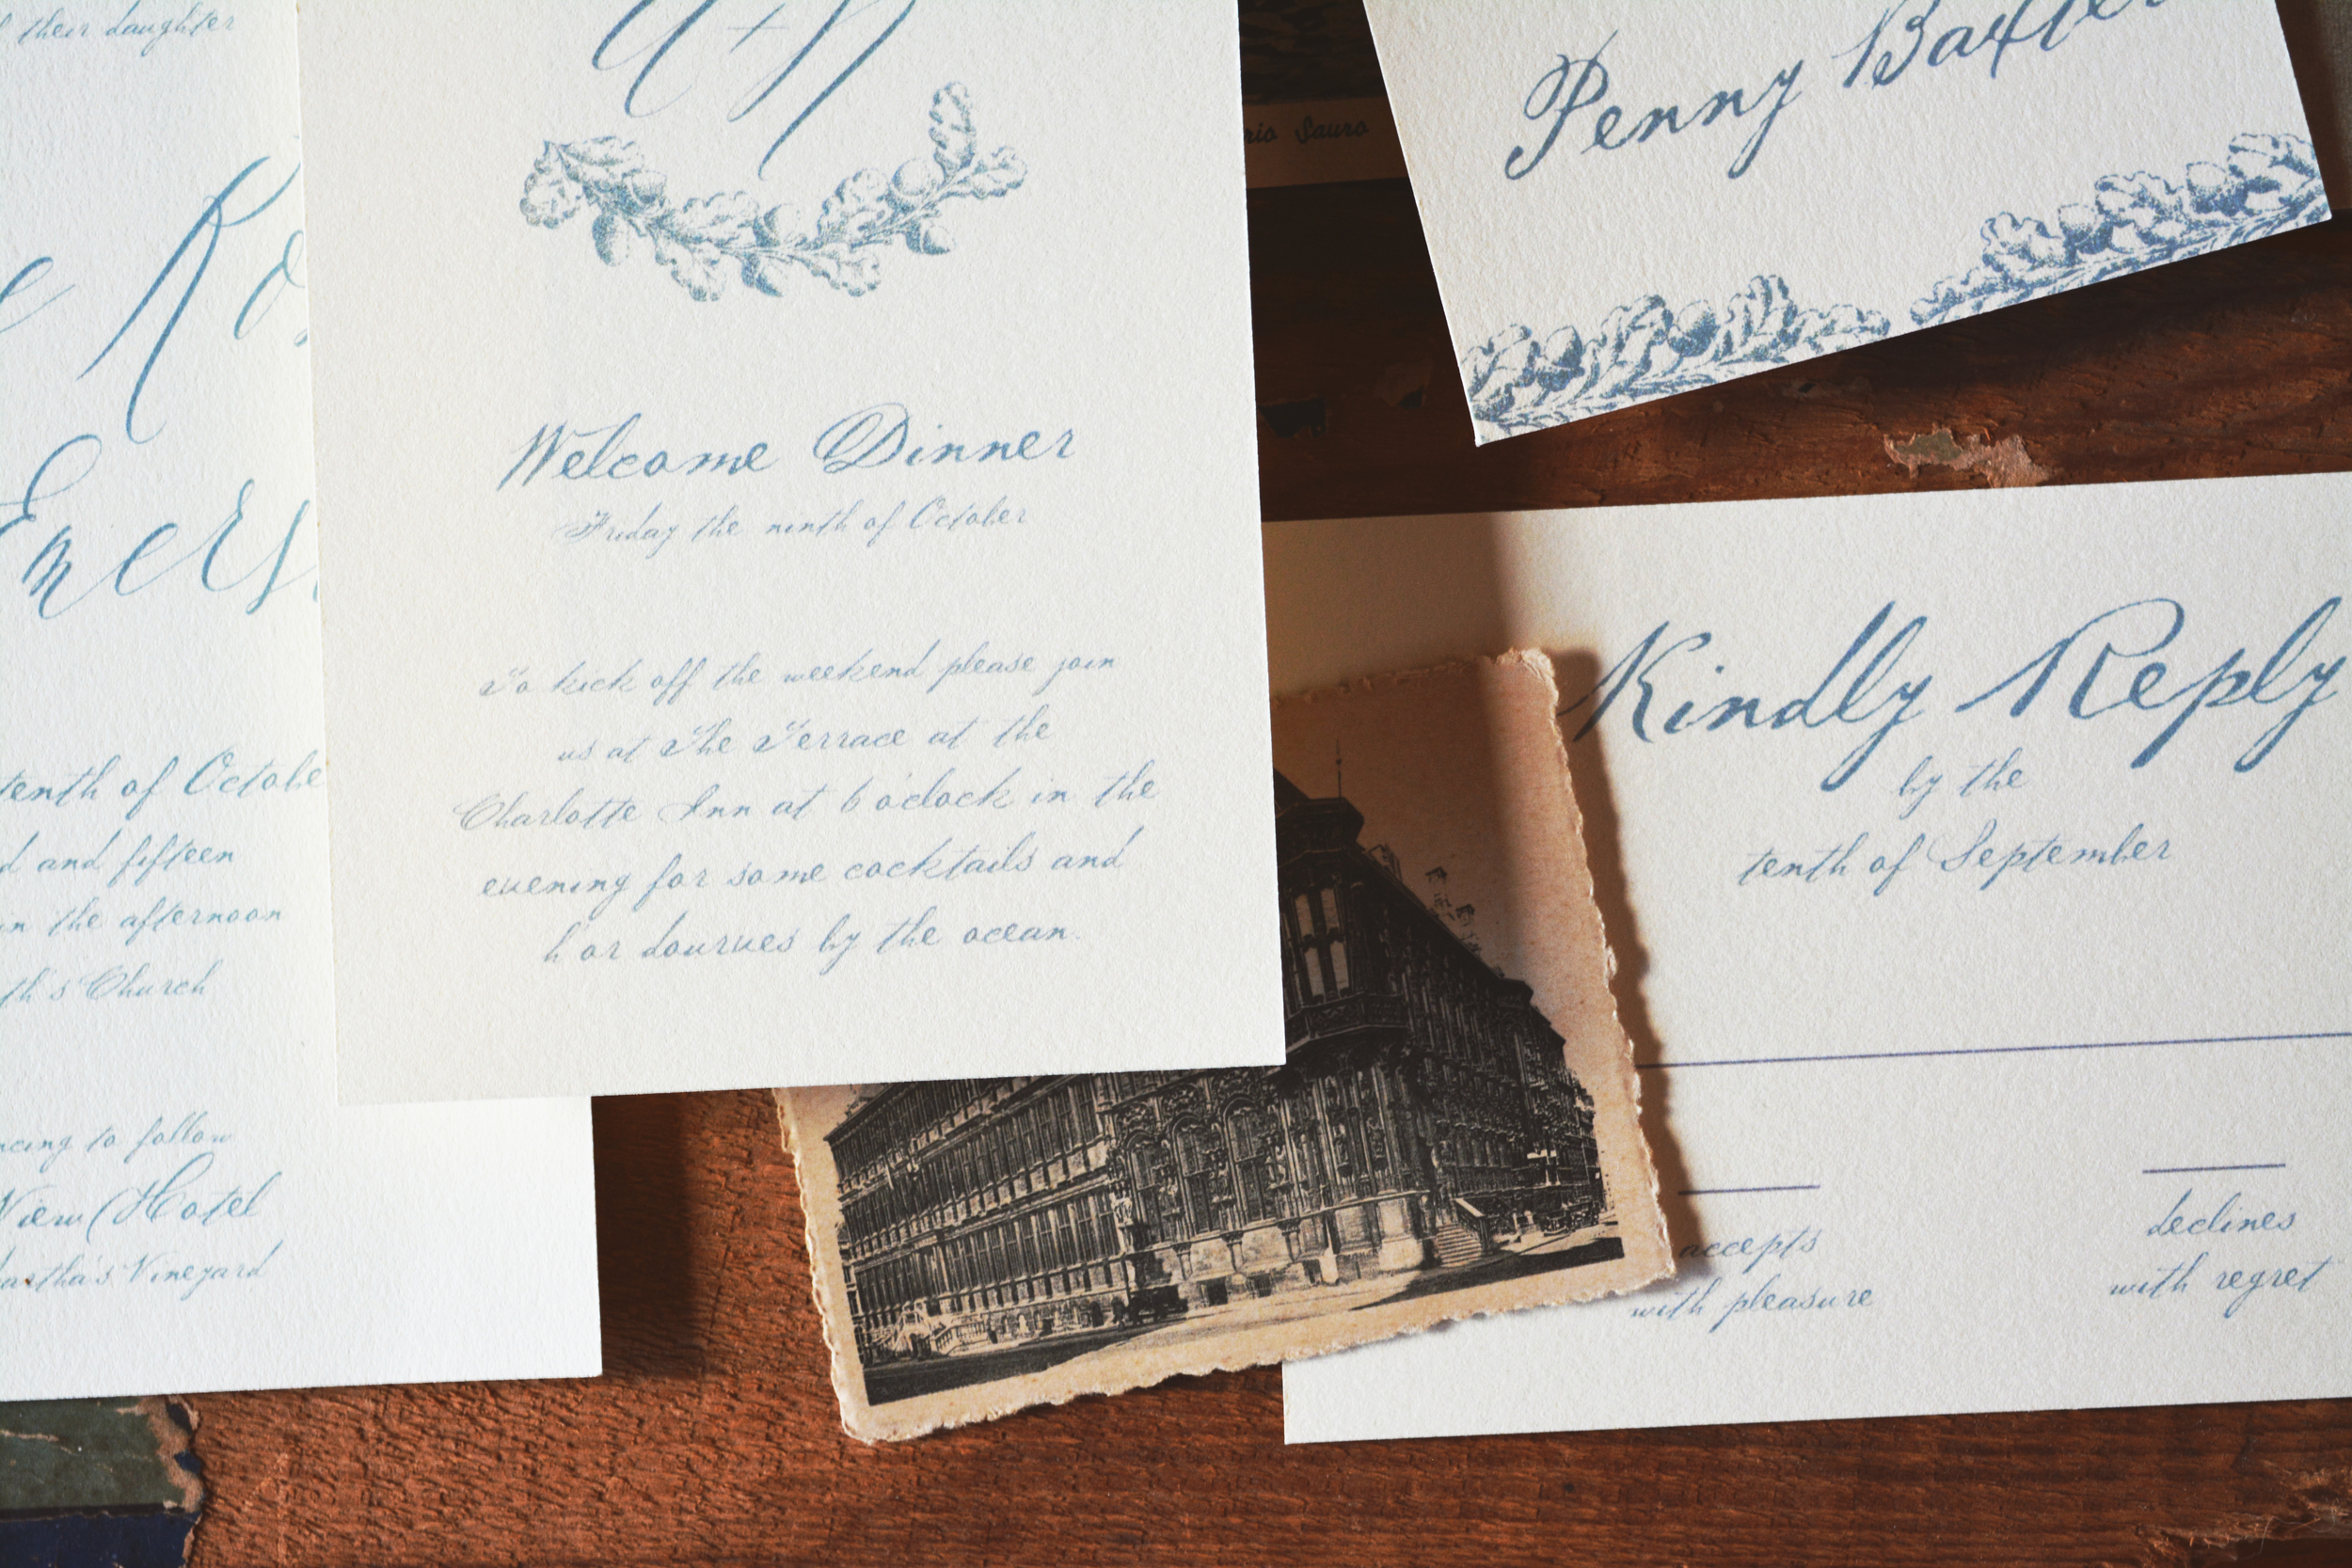 their daughter
tenth of Octobe
d and fifteen
in the afternoon
th's Church
ncing to follow
View Hotel
artha's Vineyard
+
Welcome Dinner
Friday the ninth of October
To kick off the weekend please join
us at The Terrace at the
Charlotte Inn at 6 o'clock in the
evening for some cocktails and
h'or dourves by the ocean.
Penny Baxter
rio Sauro
Kindly Reply
by the
tenth of September
accepts
with pleasure
declines
with regret